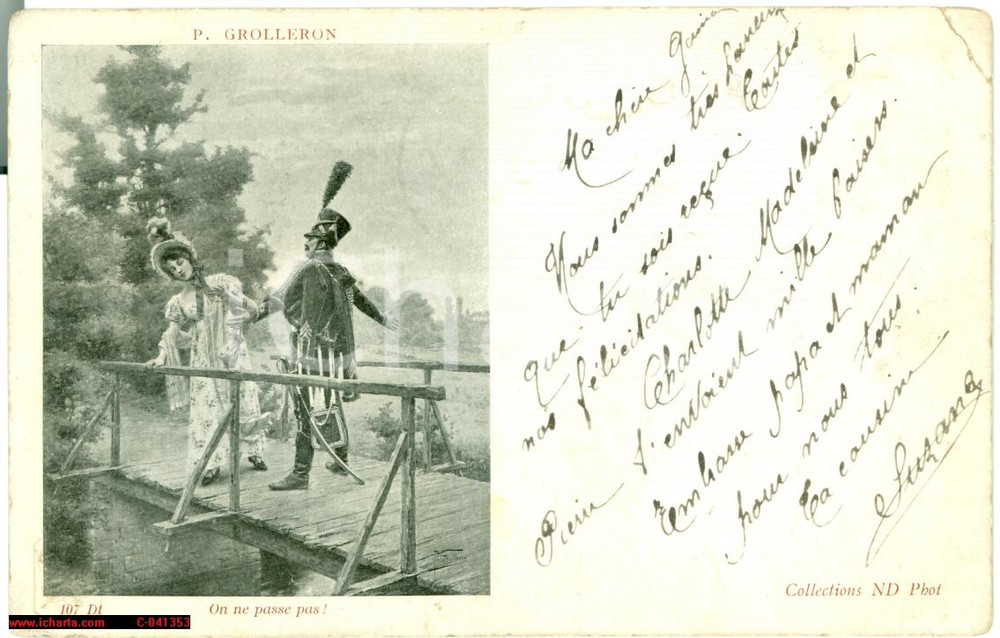 P. GROLLERON
Ma chère
Nous sommes très heureux
que tu sois reçue. Toutes
nos félicitations.
Charlotte Madeleine et
Pierre t'envoient mille baisers.
Embrasse papa et maman
pour nous tous.
Ta cousine
Suzanne
107 Dt
On ne passe pas !
Collections ND Phot
www.icharta.com C-041353